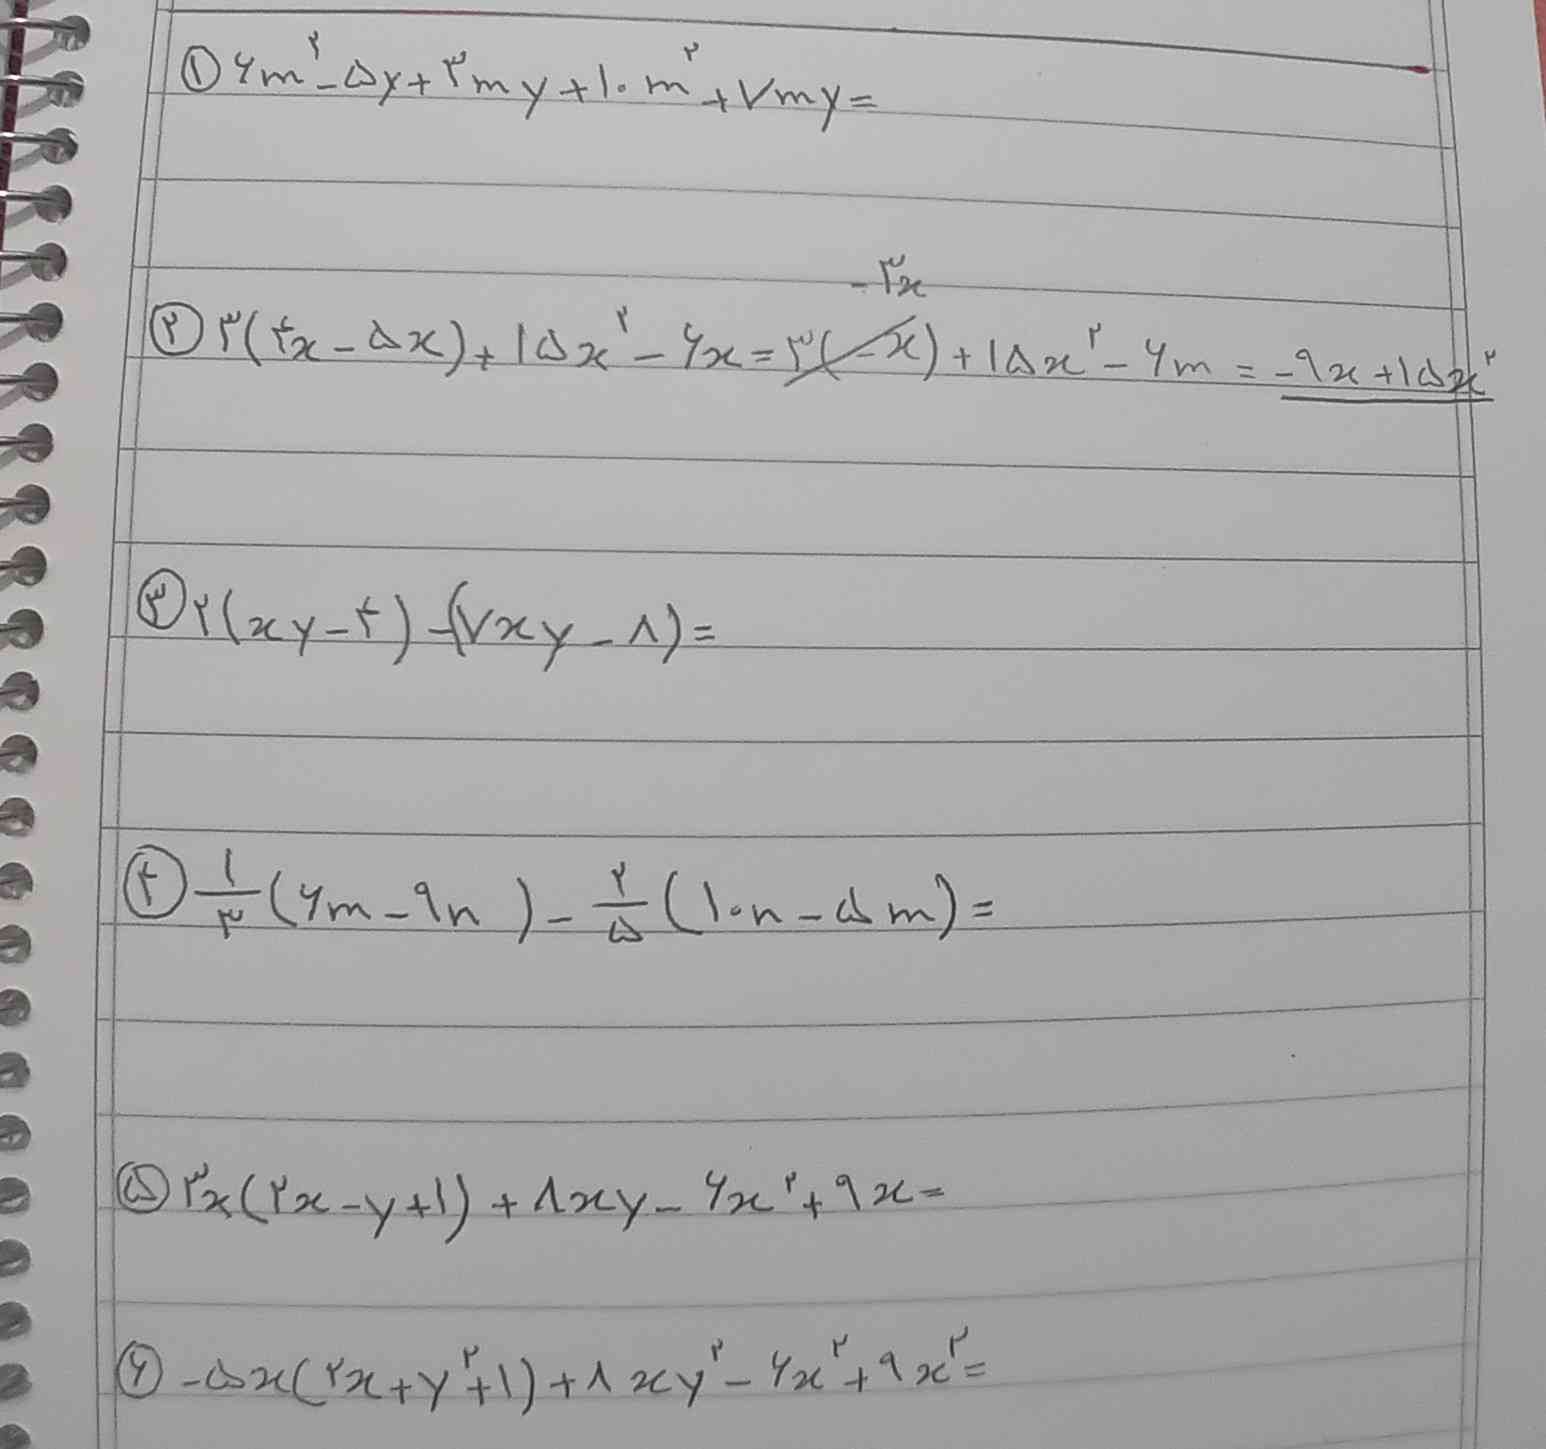 ① ۶m² - ۵y + ۳my + ۱۰m² + ۷my =
-۳x
② ۳(۴x - ۵x) + ۱۵x² - ۶x = ۳(-x) + ۱۵x² - ۶m = -۹x + ۱۵x²
③ ۲(xy - ۴) - (۷xy - ۸) =
④ ۱/۳ (۶m - ۹n) - ۲/۵ (۱۰n - ۵m) =
⑤ ۳x(۲x - y + ۱) + ۸xy - ۶x² + ۹x =
⑥ -۵x(۲x + y² + ۱) + ۸xy² - ۶x² + ۹x² =